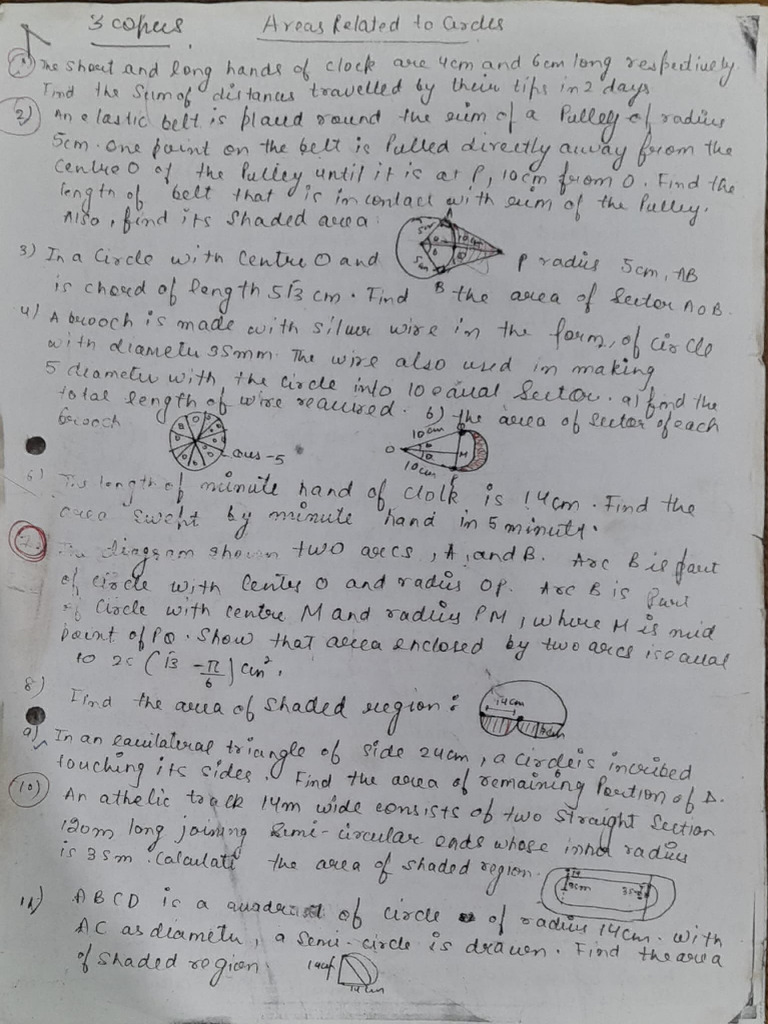 3 copies Areas Related to Circles
1) The short and long hands of clock are 4cm and 6cm long respectively.
Find the Sum of distances travelled by their tips in 2 days
2) An elastic belt is placed round the rim of a Pulley of radius
5cm. One point on the belt is Pulled directly away from the
Centre O of the Pulley until it is at P, 10cm from O. Find the
length of belt that is in contact with rim of the Pulley.
Also, find its Shaded area.
A 5cm 10cm O P 5cm B
3) In a Circle with Centre O and radius 5cm, AB
is chord of length 5√3 cm. Find the area of Sector AOB.
4) A brooch is made with silver wire in the form, of circle
with diameter 35mm. The wire also used in making
5 diameter with the circle into 10 equal Sector. a) find the
total length of wire required. b) the area of sector of each
brooch
ans-5
10cm O 10cm M P
6) The length of minute hand of clock is 14cm. Find the
area swept by minute hand in 5 minute.
7. The diagram shown two arcs, A, and B. Arc B is part
of circle with Centre O and radius OP. Arc B is Part
of Circle with centre M and radius PM, where M is mid
point of PQ. Show that area enclosed by two arcs is equal
to 25 (√3 - π/6) cm².
8) Find the area of shaded region:
14cm
9) In an equilateral triangle of side 24cm, a circle is incribed
touching its sides. Find the area of remaining Portion of Δ.
10) An athelic track 14m wide consists of two Straight Section
120m long joining Semi-circular ends whose inner radius
is 35m. Calculate the area of shaded region.
11) ABCD is a quadrant of circle of radius 14cm. With
AC as diameter, a Semi-circle is drawn. Find the area
of shaded region.
14cm
14cm